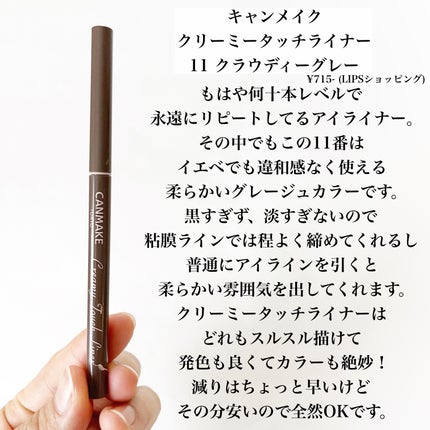 キャンメイク
クリーミータッチライナー
11 クラウディーグレー
¥715- (LIPSショッピング)
もはや何十本レベルで
永遠にリピートしてるアイライナー。
その中でもこの11番は
イエベでも違和感なく使える
柔らかいグレージュカラーです。
黒すぎず、淡すぎないので
粘膜ラインでは程よく締めてくれるし
普通にアイラインを引くと
柔らかい雰囲気を出してくれます。
クリーミータッチライナーは
どれもスルスル描けて
発色も良くてカラーも絶妙！
減りはちょっと早いけど
その分安いので全然OKです。
CANMAKE
Creamy Touch Liner